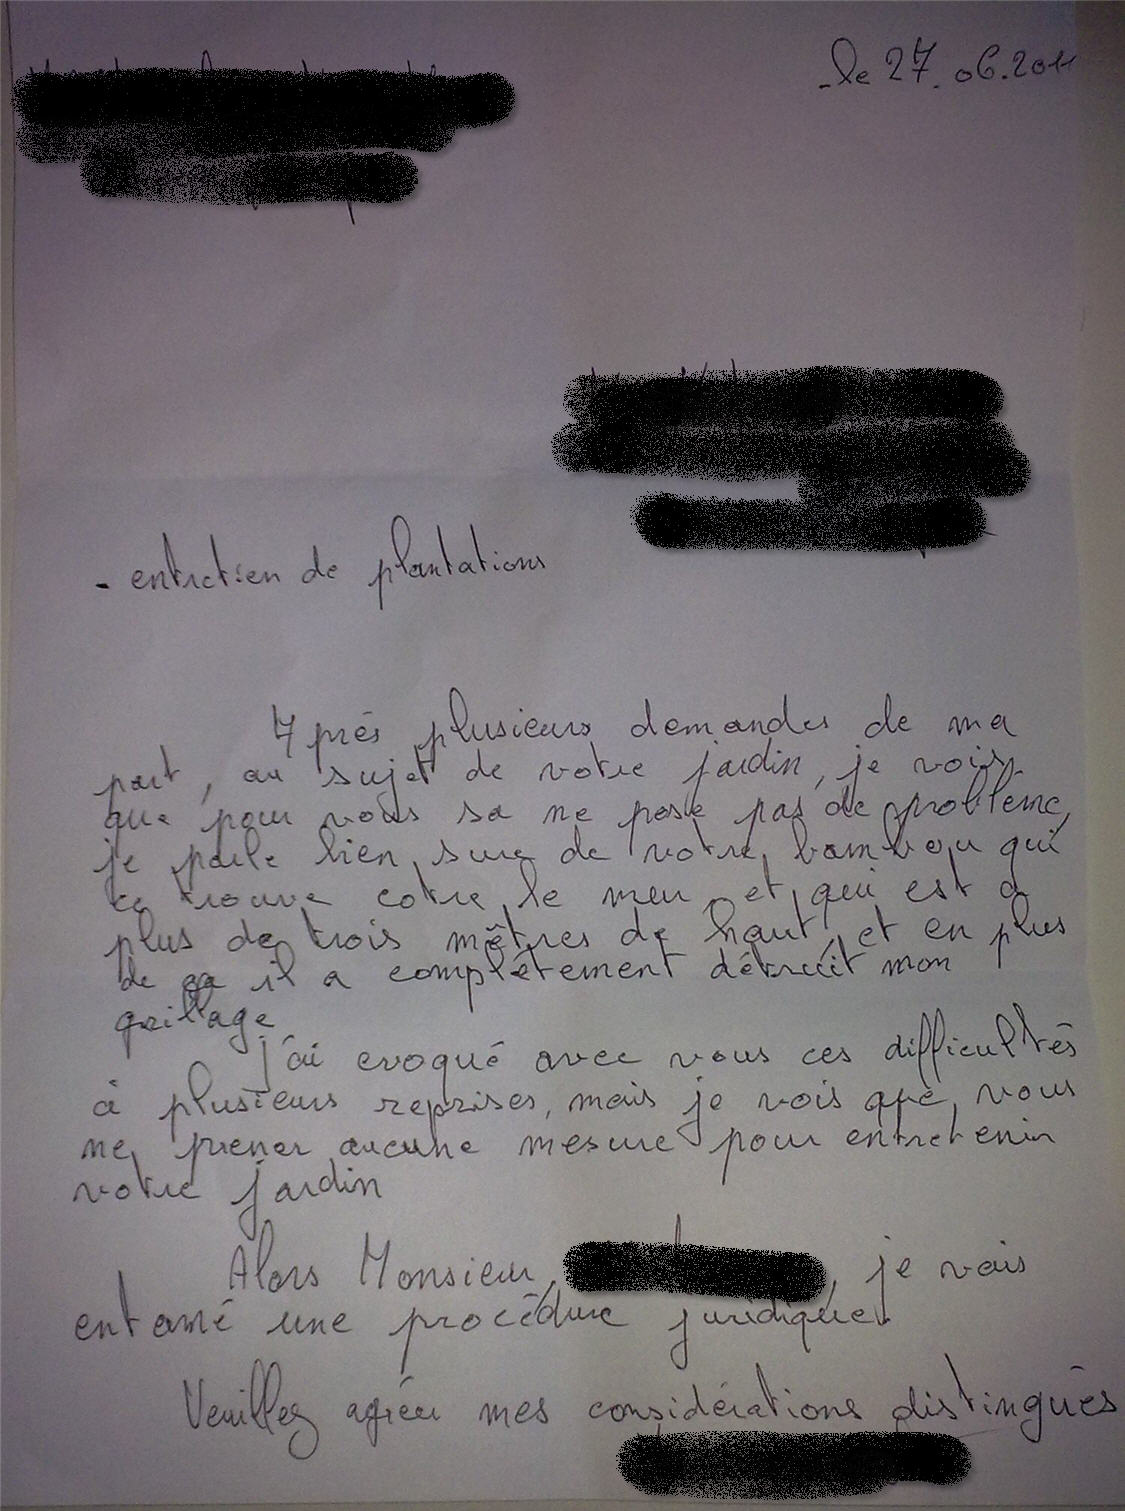 - le 27.06.2011
- entretien de plantations
Après plusieurs demandes de ma
part, au sujet de votre jardin, je vois,
que pour vous sa ne pose pas de problème,
je parle bien sure de votre bambou qui
ce trouve cotre le mur, et qui est a
plus de trois mêtres de haut, et en plus
de ça il a complêtement détruit mon
grillage
j'ai evoqué avec vous ces difficultés
à plusieurs reprises, mais je vois que vous
ne prener aucune mesure pour entretenir
votre jardin
Alors Monsieur, , je vais
entamé une procédure juridique.
Veuillez agréer mes considérations distingués